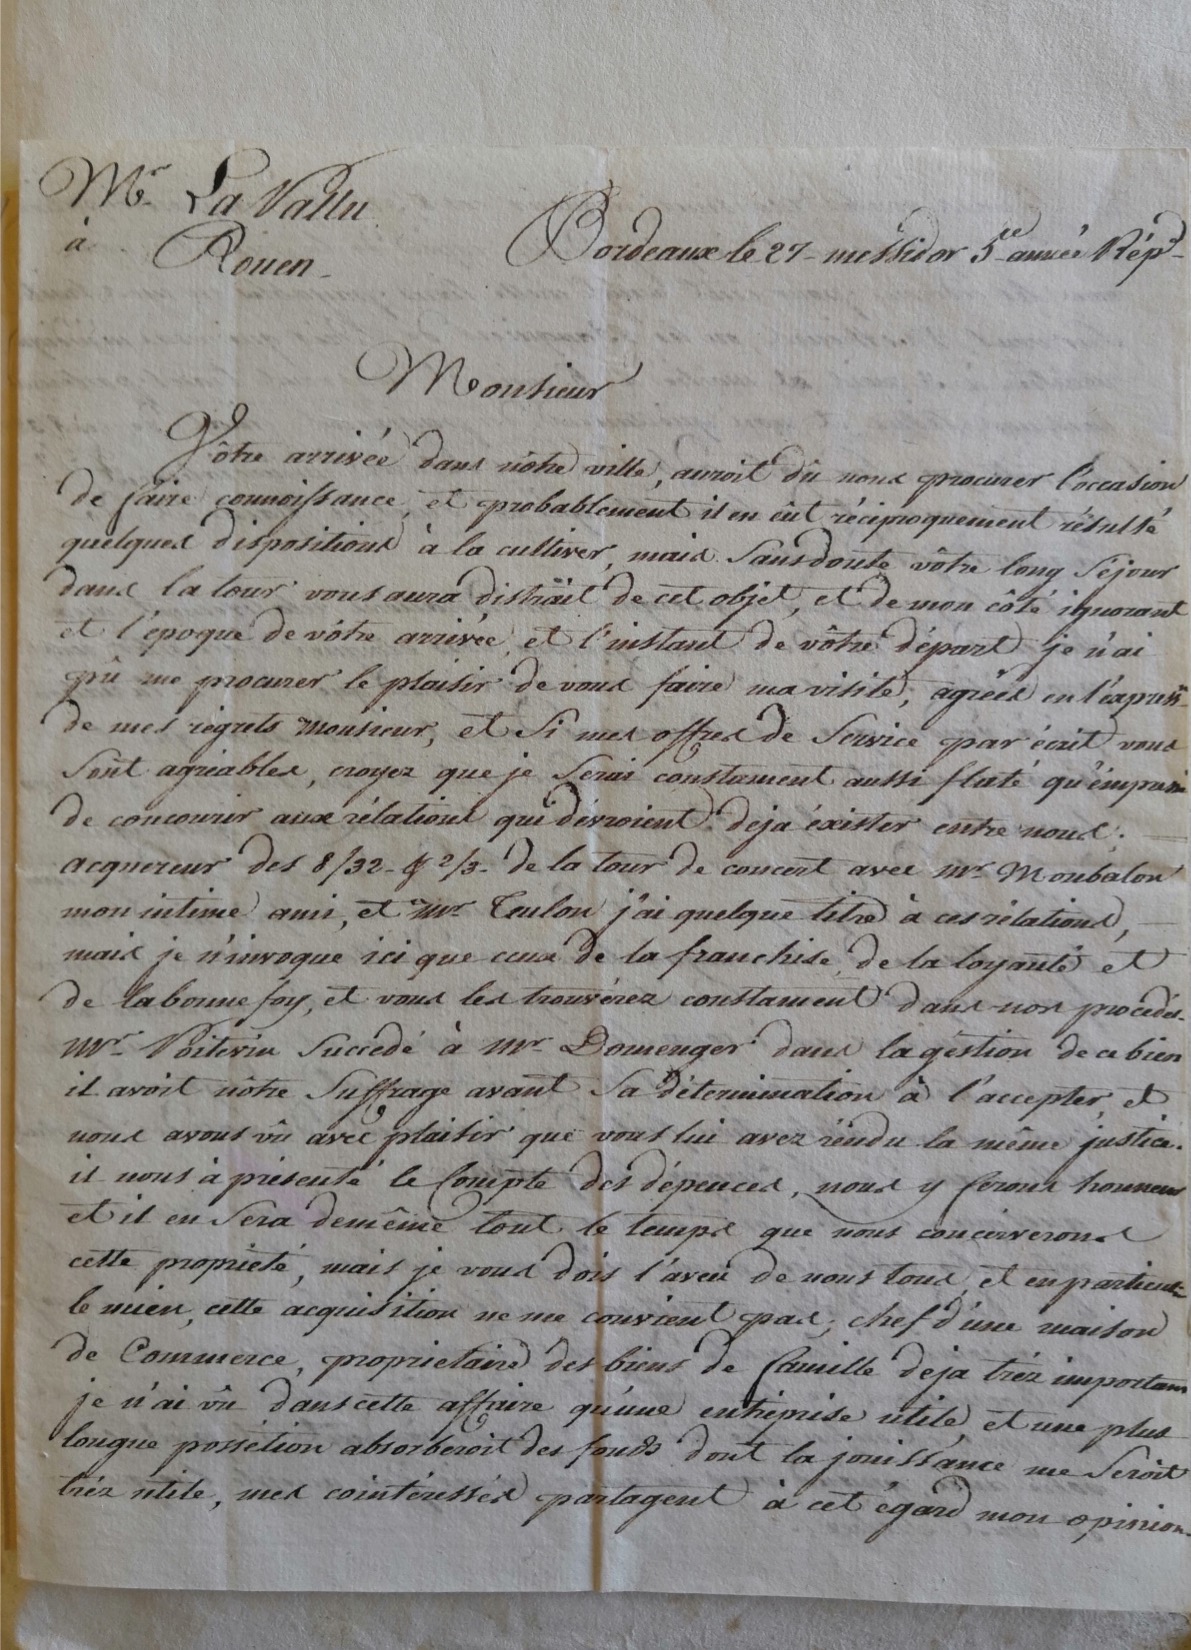 Mr. La Vallée
à Rouen
Bordeaux le 27 messidor 5e année Rép.
Monsieur
Vôtre arrivée dans nôtre ville, auroit dû nous procurer l'occasion
de faire connoissance, et probablement il en eût réciproquement résulté
quelques dispositions à la cultiver, mais sans doute vôtre long séjour
dans la tour vous aura distrait de cet objet, et de mon côté ignorant
et l'époque de vôtre arrivée, et l'instant de vôtre départ je n'ai
pû me procurer le plaisir de vous faire ma visite, agréés en l'expressi
de mes régrets Monsieur, et si mes offres de Service par écrit vous
sont agréables, croyez que je serai constament aussi flaté qu'émpressé
de concourir aux rélations qui dévroient deja éxister entre nous. —
acquereur des 8/32 - & 2/3 - de la tour de concert avec Mr Monbalon
mon intime ami, et Mr Teulon j'ai quelque titre à ces rélations, —
mais je n'invoque ici que ceux de la franchise, de la loyauté et
de la bonne foy, et vous les trouvérez constament dans nos procédés.
Mr Poitevin succedé à Mr Domenger dans la géstion de ce bien
il avoit nôtre suffrage avant sa détermination à l'accepter, et
nous avons vû avec plaisir que vous lui avez réndu la même justice.
il nous à présenté le Compte des dépences, nous y ferons honneur
et il en sera de même tout le temps que nous concerverons
cette proprieté, mais je vous dois l'aveu de nous tous, et en particulr
le mien, cette acquisition ne me convient pas; chef d'une maison
de Commerce, proprietaire des biens de famille deja tréz important
je n'ai vû dans cette affaire qu'une entréprise utile, et une plus
longue possétion absorberoit des fonds dont la jouissance me seroit
tréz utile, mes cointéressés partagent à cet égard mon opinion.